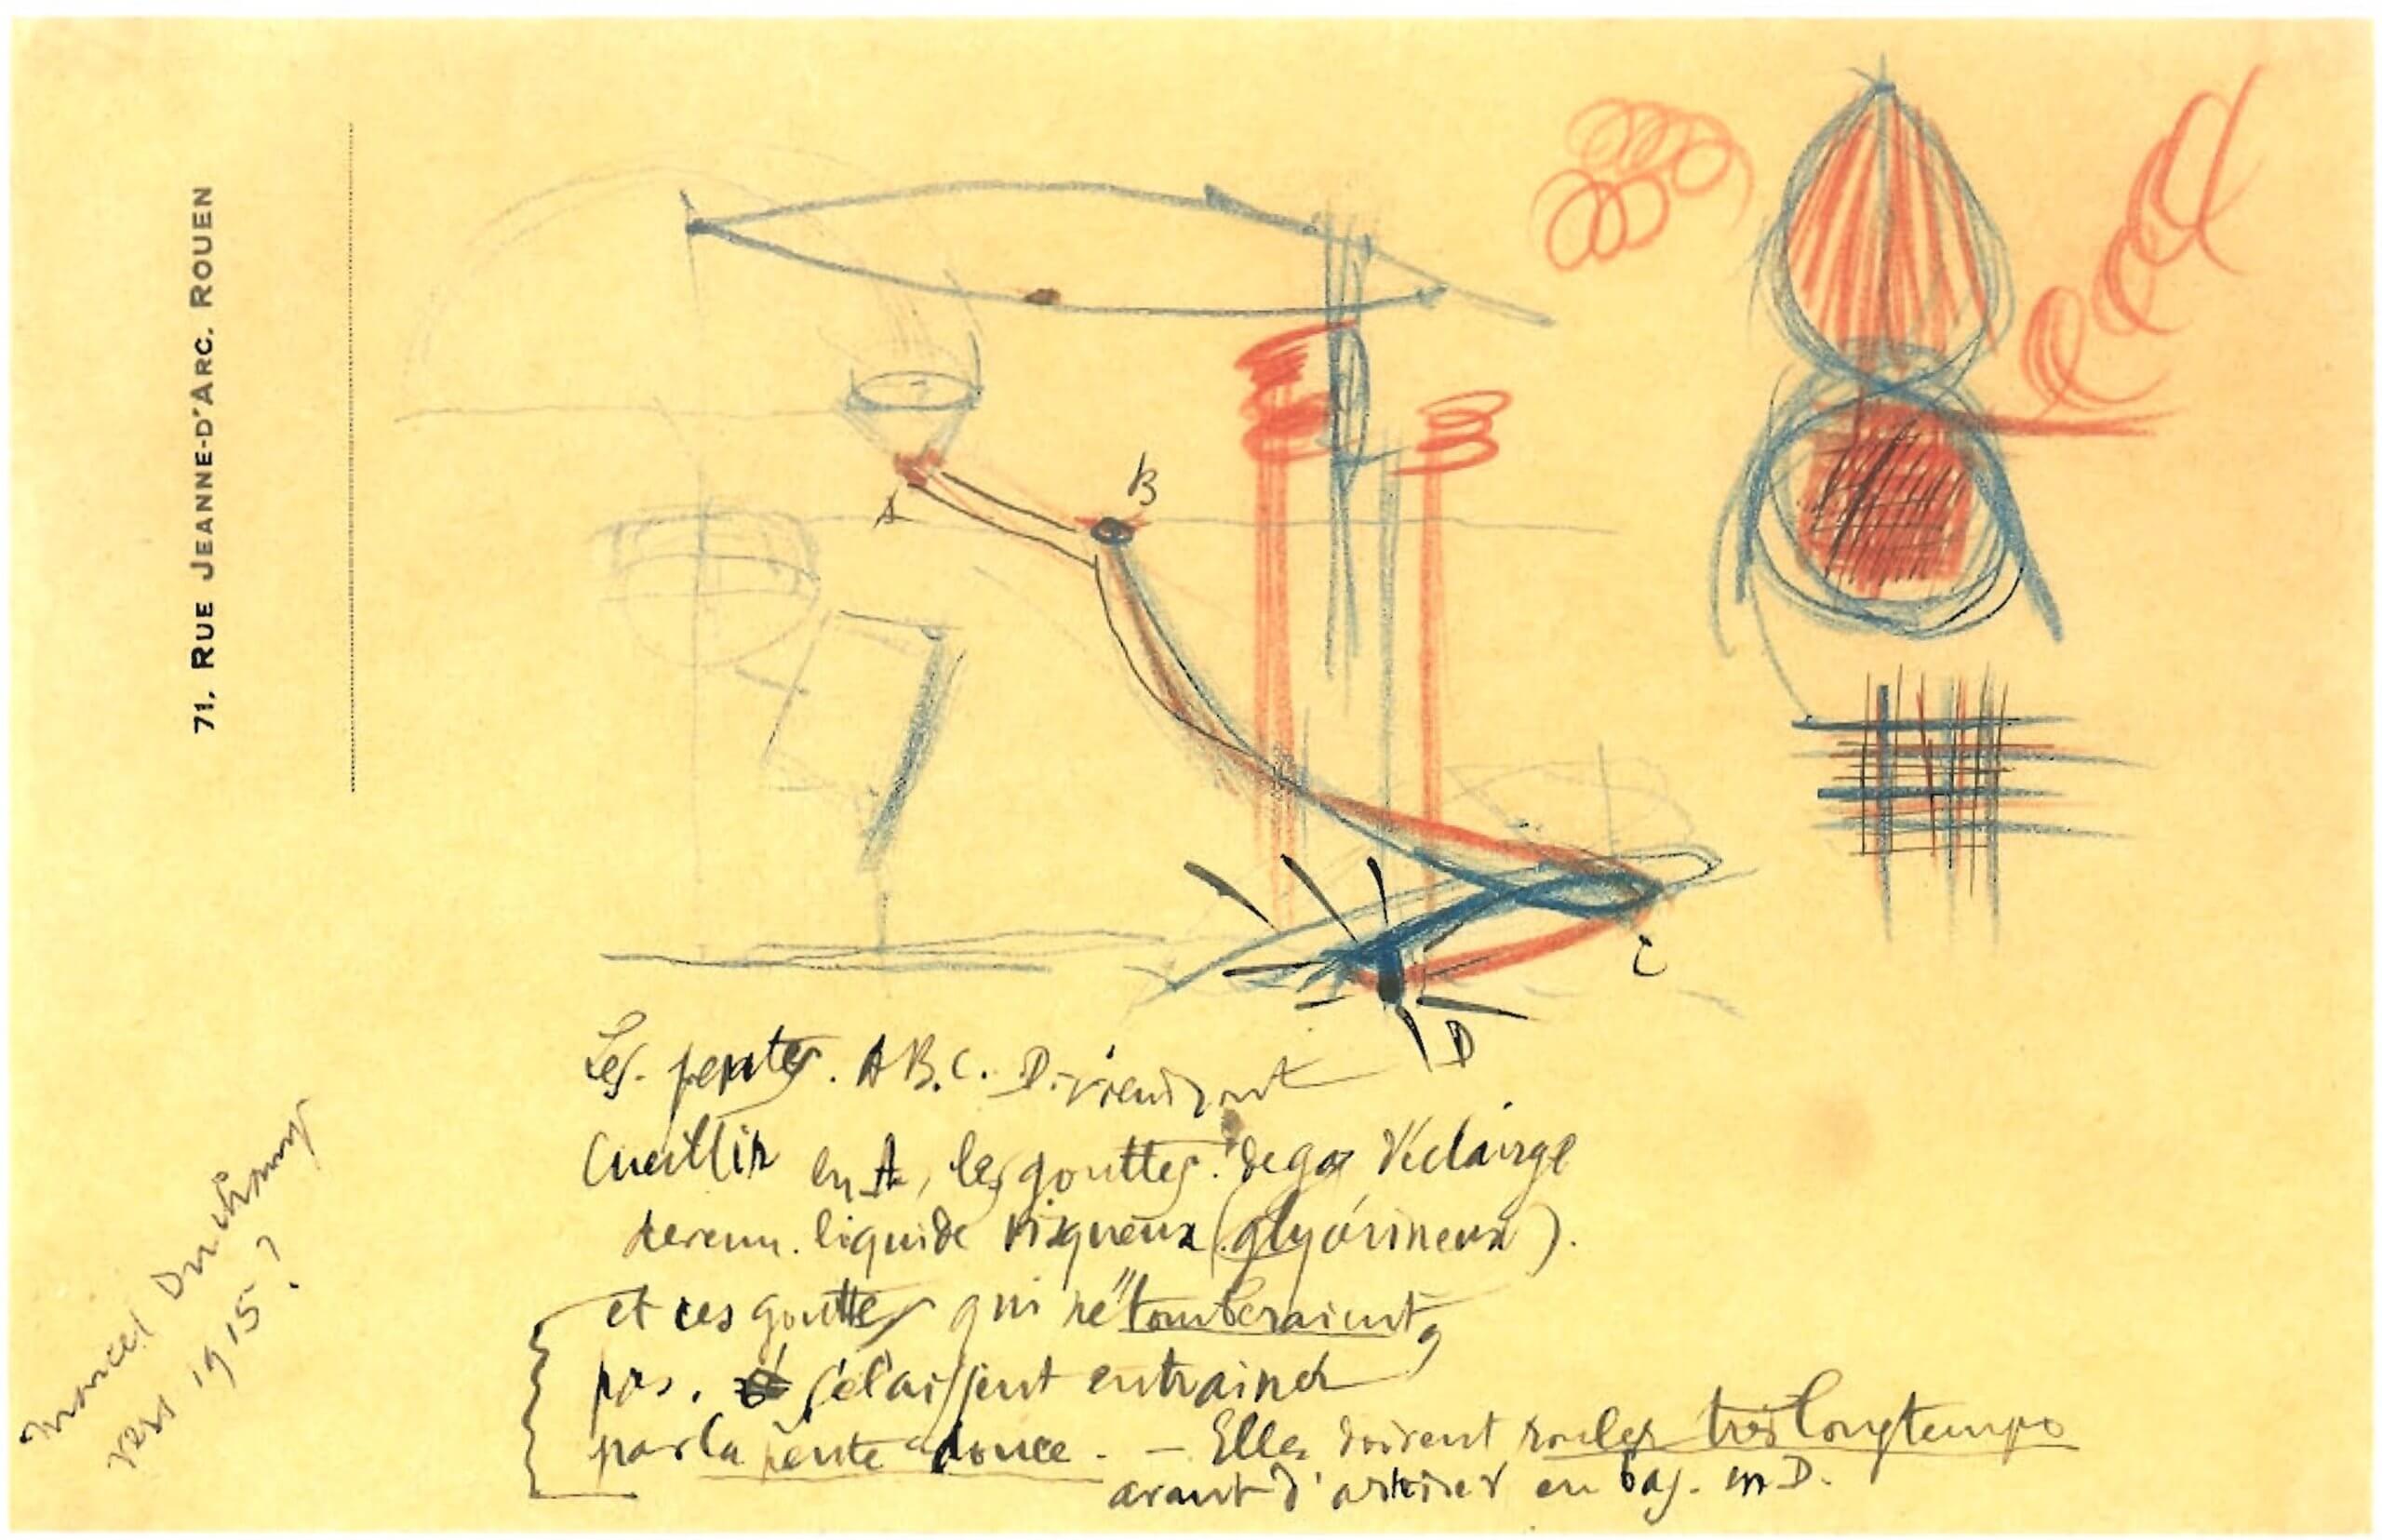 71, RUE JEANNE-D'ARC. ROUEN
A
B
C
D
Les pentes. A B.C. D. viendront
cueillir en A, les gouttes. de gaz d'éclairage
devenu. liquide visqueux (glycérineux).
et ces gouttes qui ne "tomberaient
pas. se laissent entrainer
par la pente douce. — Elles doivent rouler très longtemps
avant d'arriver en bas. en D.
Marcel Duchamp
vers 1915?